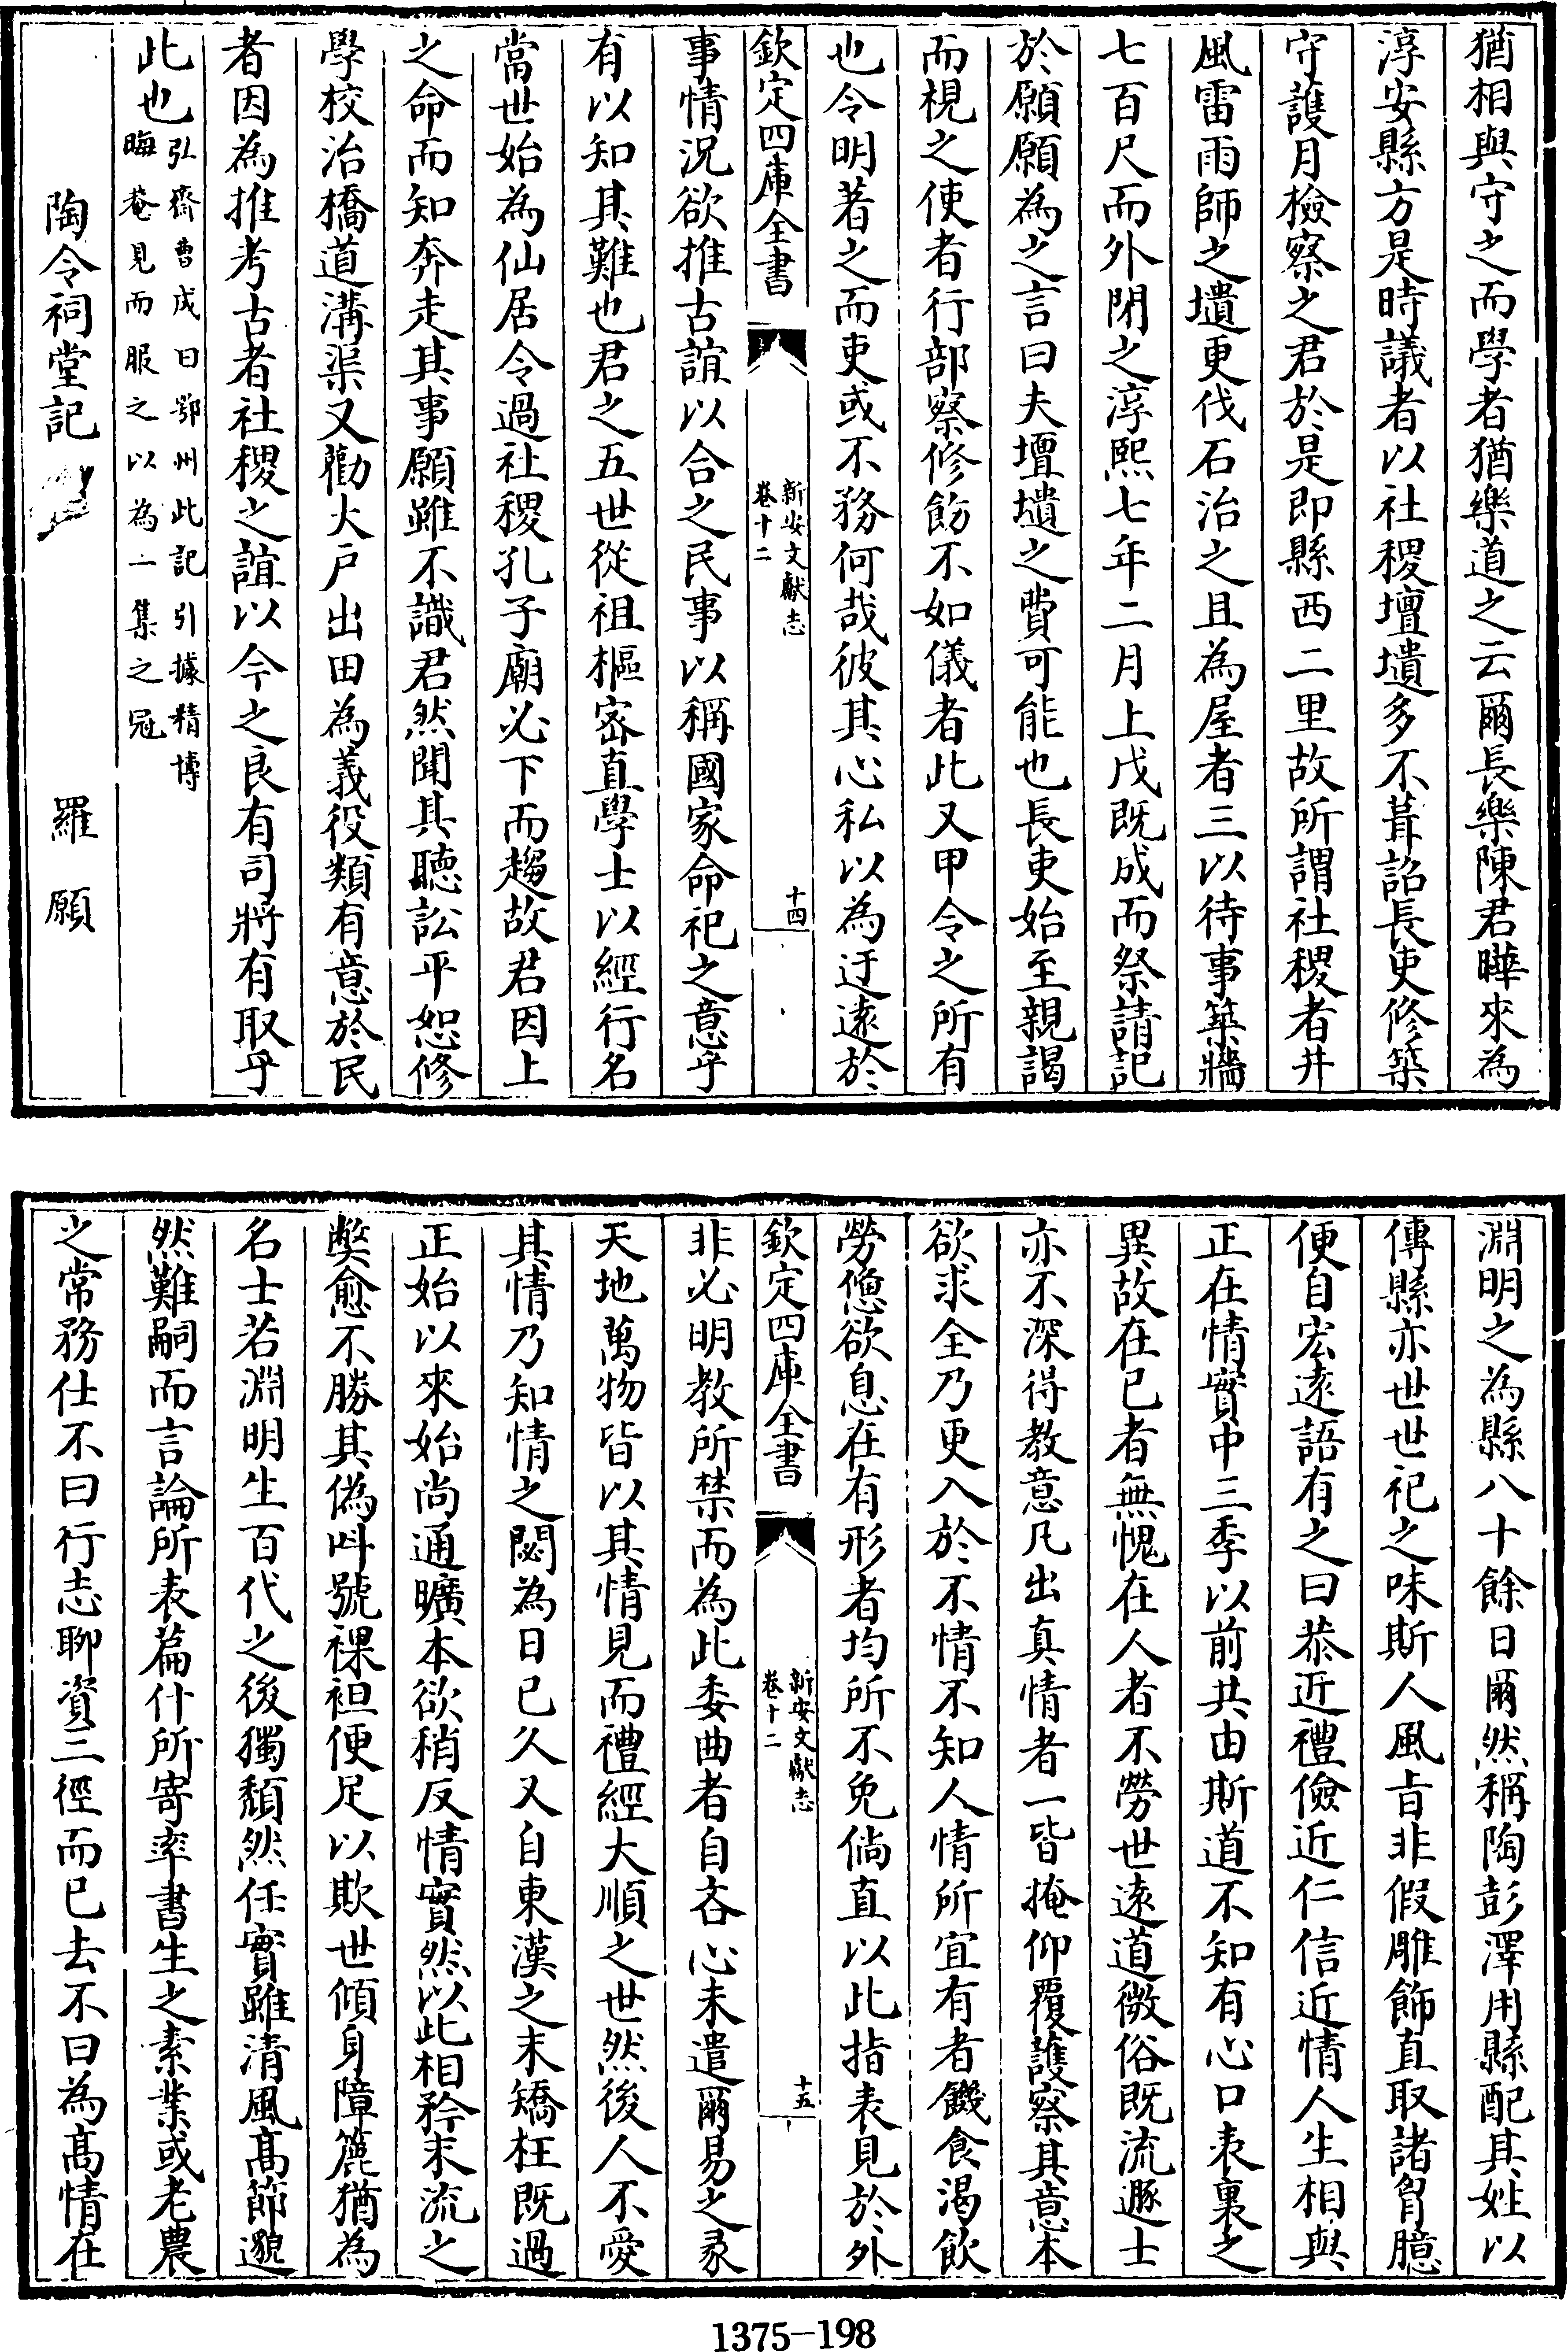 猶相與守之而學者猶樂道之云爾長樂陳君曄來為
淳安縣方是時議者以社稷壇壝多不葺詔長吏修築
守護月檢察之君於是即縣西二里故所謂社稷者并
風雷雨師之壝更伐石治之且為屋者三以待事築牆
七百尺而外閉之淳熙七年二月上戊既成而祭請記
於願願為之言曰夫壇壝之費可能也長吏始至親謁
而視之使者行部察修飭不如儀者此又甲令之所有
也令明著之而吏或不務何哉彼其心私以為迂遠於
欽定四庫全書
新安文獻志
卷十二
十四
事情況欲推古誼以合之民事以稱國家命祀之意乎
有以知其難也君之五世從祖樞宻直學士以經行名
當世始為仙居令過社稷孔子廟必下而趨故君因上
之命而知奔走其事願雖不識君然聞其聽訟平恕修
學校治橋道溝渠又勸大戶出田為義役類有意於民
者因為推考古者社稷之誼以今之良有司將有取乎
此也
弘齋曹成曰鄂州此記引據精博
晦菴見而服之以為一集之冠
陶令祠堂記
羅願
淵明之為縣八十餘日爾然稱陶彭澤用縣配其姓以
傳縣亦世世祀之味斯人風旨非假雕飾直取諸胷臆
便自宏遠語有之曰恭近禮儉近仁信近情人生相與
正在情實中三季以前共由斯道不知有心口表裏之
異故在已者無愧在人者不勞世遠道微俗既流遯士
亦不深得教意凡出真情者一皆掩仰覆護察其意本
欲求全乃更入於不情不知人情所宜有者饑食渴飲
勞憊欲息在有形者均所不免倘直以此指表見於外
欽定四庫全書
新安文獻志
卷十二
十五
非必明教所禁而為此委曲者自吝心未遣爾易之彖
天地萬物皆以其情見而禮經大順之世然後人不愛
其情乃知情之閟為日已久又自東漢之末矯枉既過
正始以來始尚通曠本欲稍反情實然以此相矜末流之
獘愈不勝其偽呌號裸袒便足以欺世傾身障簏猶為
名士若淵明生百代之後獨頹然任實雖清風髙節邈
然難嗣而言論所表篇什所寄率書生之素業或老農
之常務仕不曰行志聊資三徑而已去不曰為髙情在
1375-198